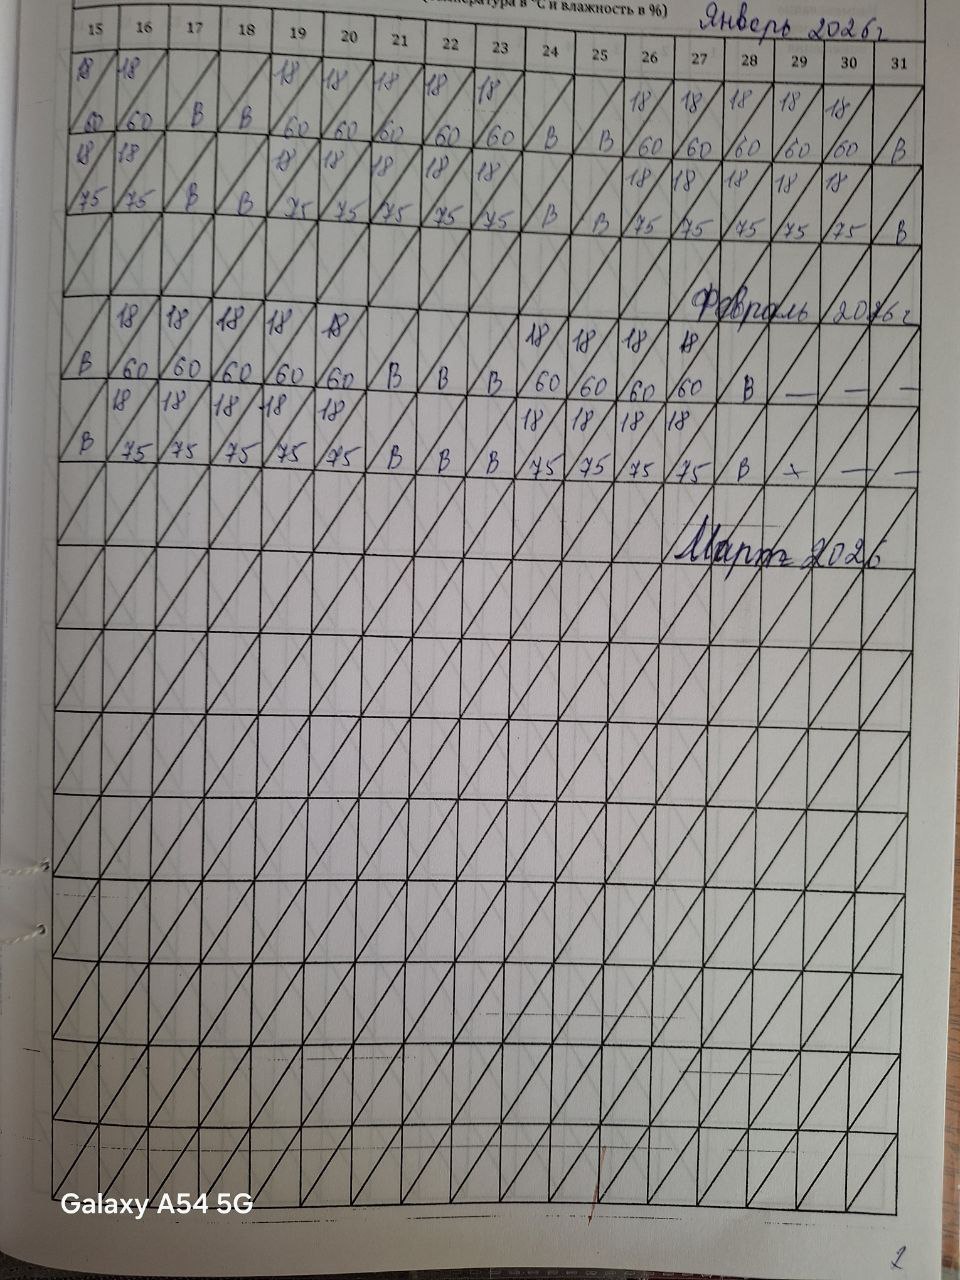 в °С и влажность в %)
Январь 2026г
15 16 17 18 19 20 21 22 23 24 25 26 27 28 29 30 31
18 18 18 18 18 18 18 18 18 18 18 18
60 60 В В 60 60 60 60 60 В В 60 60 60 60 60 В
18 18 18 18 18 18 18 18 18 18 18 18
75 75 В В 75 75 75 75 75 В В 75 75 75 75 75 В
Февраль 2026г
18 18 18 18 18 18 18 18 18
В 60 60 60 60 60 В В В 60 60 60 60 В — — —
18 18 18 18 18 18 18 18 18
В 75 75 75 75 75 В В В 75 75 75 75 В — —
Март 2026
Galaxy A54 5G